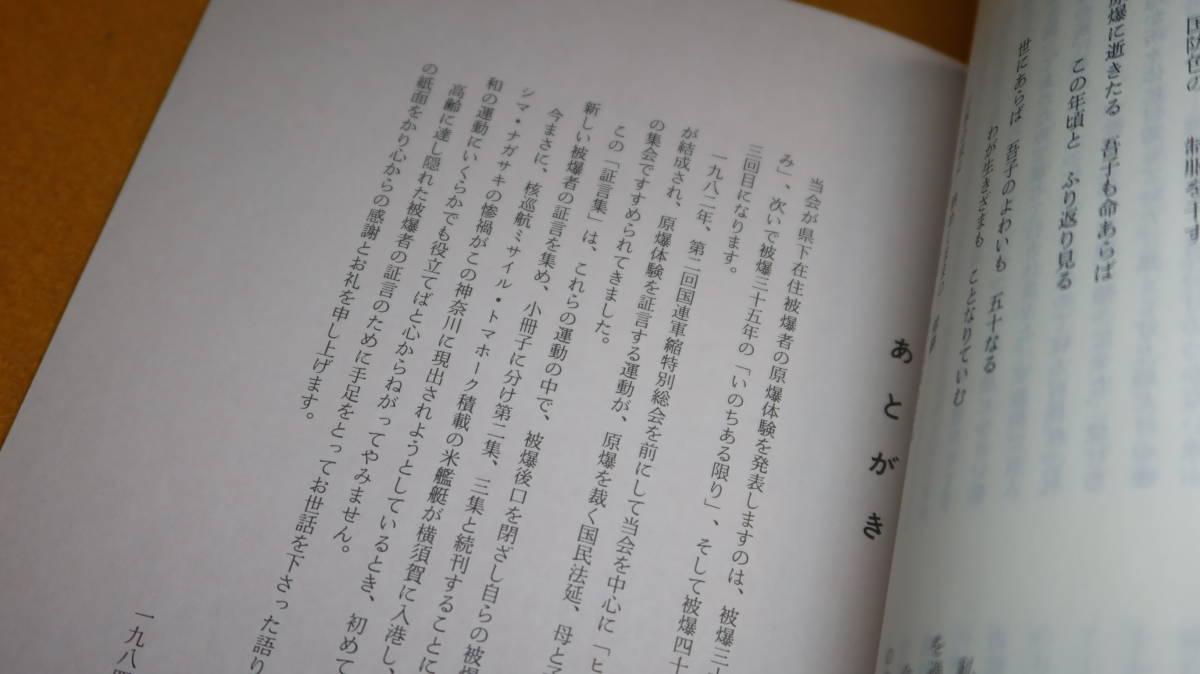 原爆に逝きたる 吾子も命あらば
この年頃と ふり返り見る
世にあらば 吾子のよわいも 五十なる
わが生きざまも ことなりていむ
あとがき
当会が県下在住被爆者の原爆体験を発表しますのは、被爆三十
み」、次いで被爆三十五年の「いのちある限り」、そして被爆四十
三回目になります。
一九八二年、第二回国連軍縮特別総会を前にして当会を中心に「ヒ
が結成され、原爆体験を証言する運動が、原爆を裁く国民法廷、母と子
の集会ですすめられてきました。
この「証言集」は、これらの運動の中で、被爆後口を閉ざし自らの被爆
新しい被爆者の証言を集め、小冊子に分け第二集、三集と続刊することに
今まさに、核巡航ミサイル・トマホーク積載の米艦艇が横須賀に入港し、
シマ・ナガサキの惨禍がこの神奈川に現出されようとしているとき、初めて
和の運動にいくらかでも役立てばと心からねがってやみません。
高齢に達し隠れた被爆者の証言のために手足をとってお世話を下さった語り
の紙面をかり心からの感謝とお礼を申し上げます。
一九八四